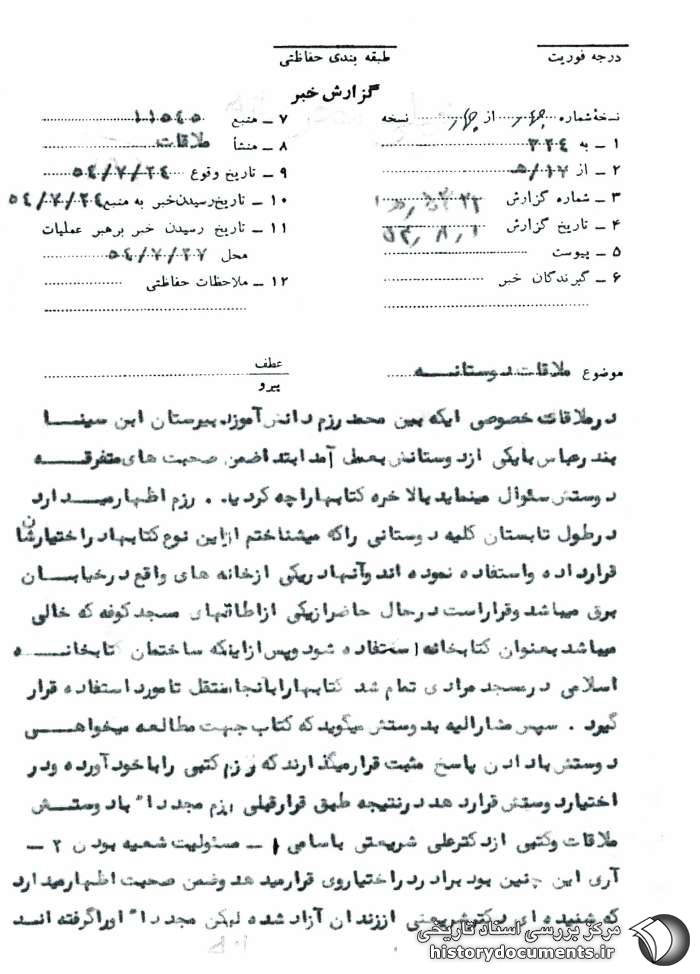 درجه فوریت
طبقه بندی حفاظتی
گزارش خبر
نسخهٔ شماره از نسخه
۱ ـ به ۳۲۴
۲ ـ از ۱۷/ﻫ
۳ ـ شماره گزارش
۴ ـ تاریخ گزارش
۵ ـ پیوست
۶ ـ گیرندگان خبر
۷ ـ منبع ۱۱۵۴۵
۸ ـ منشأ ملاقات
۹ ـ تاریخ وقوع ۵۴/۷/۲۴
۱۰ ـ تاریخ رسیدن خبر به منبع ۵۴/۷/۲۴
۱۱ ـ تاریخ رسیدن خبر برهبر عملیات
محل ۵۴/۷/۲۷
۱۲ ـ ملاحظات حفاظتی
موضوع ملاقات دوستانه
عطف
پیرو
درملاقات خصوصی ایکه بین محمد رزم دانش آموزدبیرستان ابن سینا
بندرعباس بایکی ازدوستانش بعمل آمد ابتدا ضمن صحبت های متفرقه
دوستش سئوال مینماید بالاخره کتابهاراچه کردید. رزم اظهارمیدارد
درطول تابستان کلیه دوستانی راکه میشناختم ازاین نوع کتابهادراختیارشان
قرارداده واستفاده نموده اند وآنهادریکی ازخانه های واقع درخیابان
برق میباشد وقراراست درحال حاضرازیکی ازاطاقهای مسجدکوفه که خالی
میباشد بعنوان کتابخانه استفاده شود وپس ازاینکه ساختمان کتابخانه
اسلامی درمسجد مرادی تمام شد کتابهارابآنجامنتقل تامورد استفاده قرار
گیرد . سپس مشارالیه بدوستش میگوید که کتاب جهت مطالعه میخواهی
دوستش بادادن پاسخ مثبت قرارمیگذارند که رزم کتبی راباخود آورده ودر
اختیاردوستش قراردهد درنتیجه طبق قرارقبلی رزم مجددا" بادوستش
ملاقات وکتبی ازدکترعلی شریعتی باسامی ۱ ـ مسئولیت شعیه بودن ۲ ـ
آری این چنین بود برادر دراختیاروی قرارمیدهد وضمن صحبت اظهارمیدارد
که شنیده ای دکترشریعتی اززندان آزاد شده لیکن مجددا" اوراگرفته اند
مرکز بررسی اسناد تاریخی
historydocuments.ir